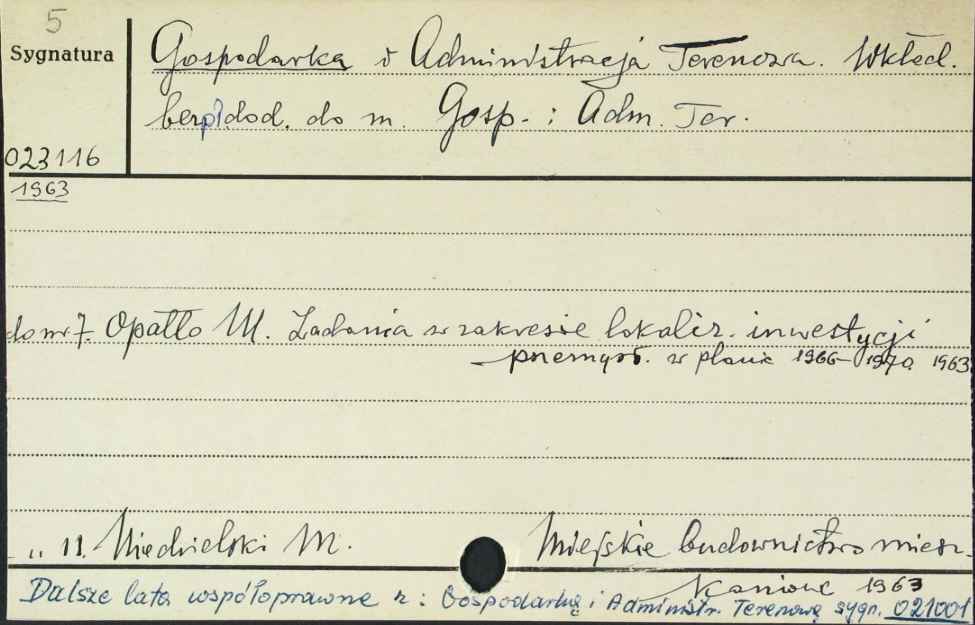 5
Sygnatura
Gospodarka i Administracja Terenowa. Wkład.
bezpł. dod. do m. Gosp. i Adm. Ter.
023116
1963
do nr 7. Opałło M. Zadania w zakresie lokaliz. inwestycji
przemysł. w planie 1966-1970 1963
" 11. Niedzielski M. Miejskie budownictwo miesz-
kaniowe 1963
Dalsze lata współoprawne z: Gospodarką i Administr. Terenową sygn. 021001